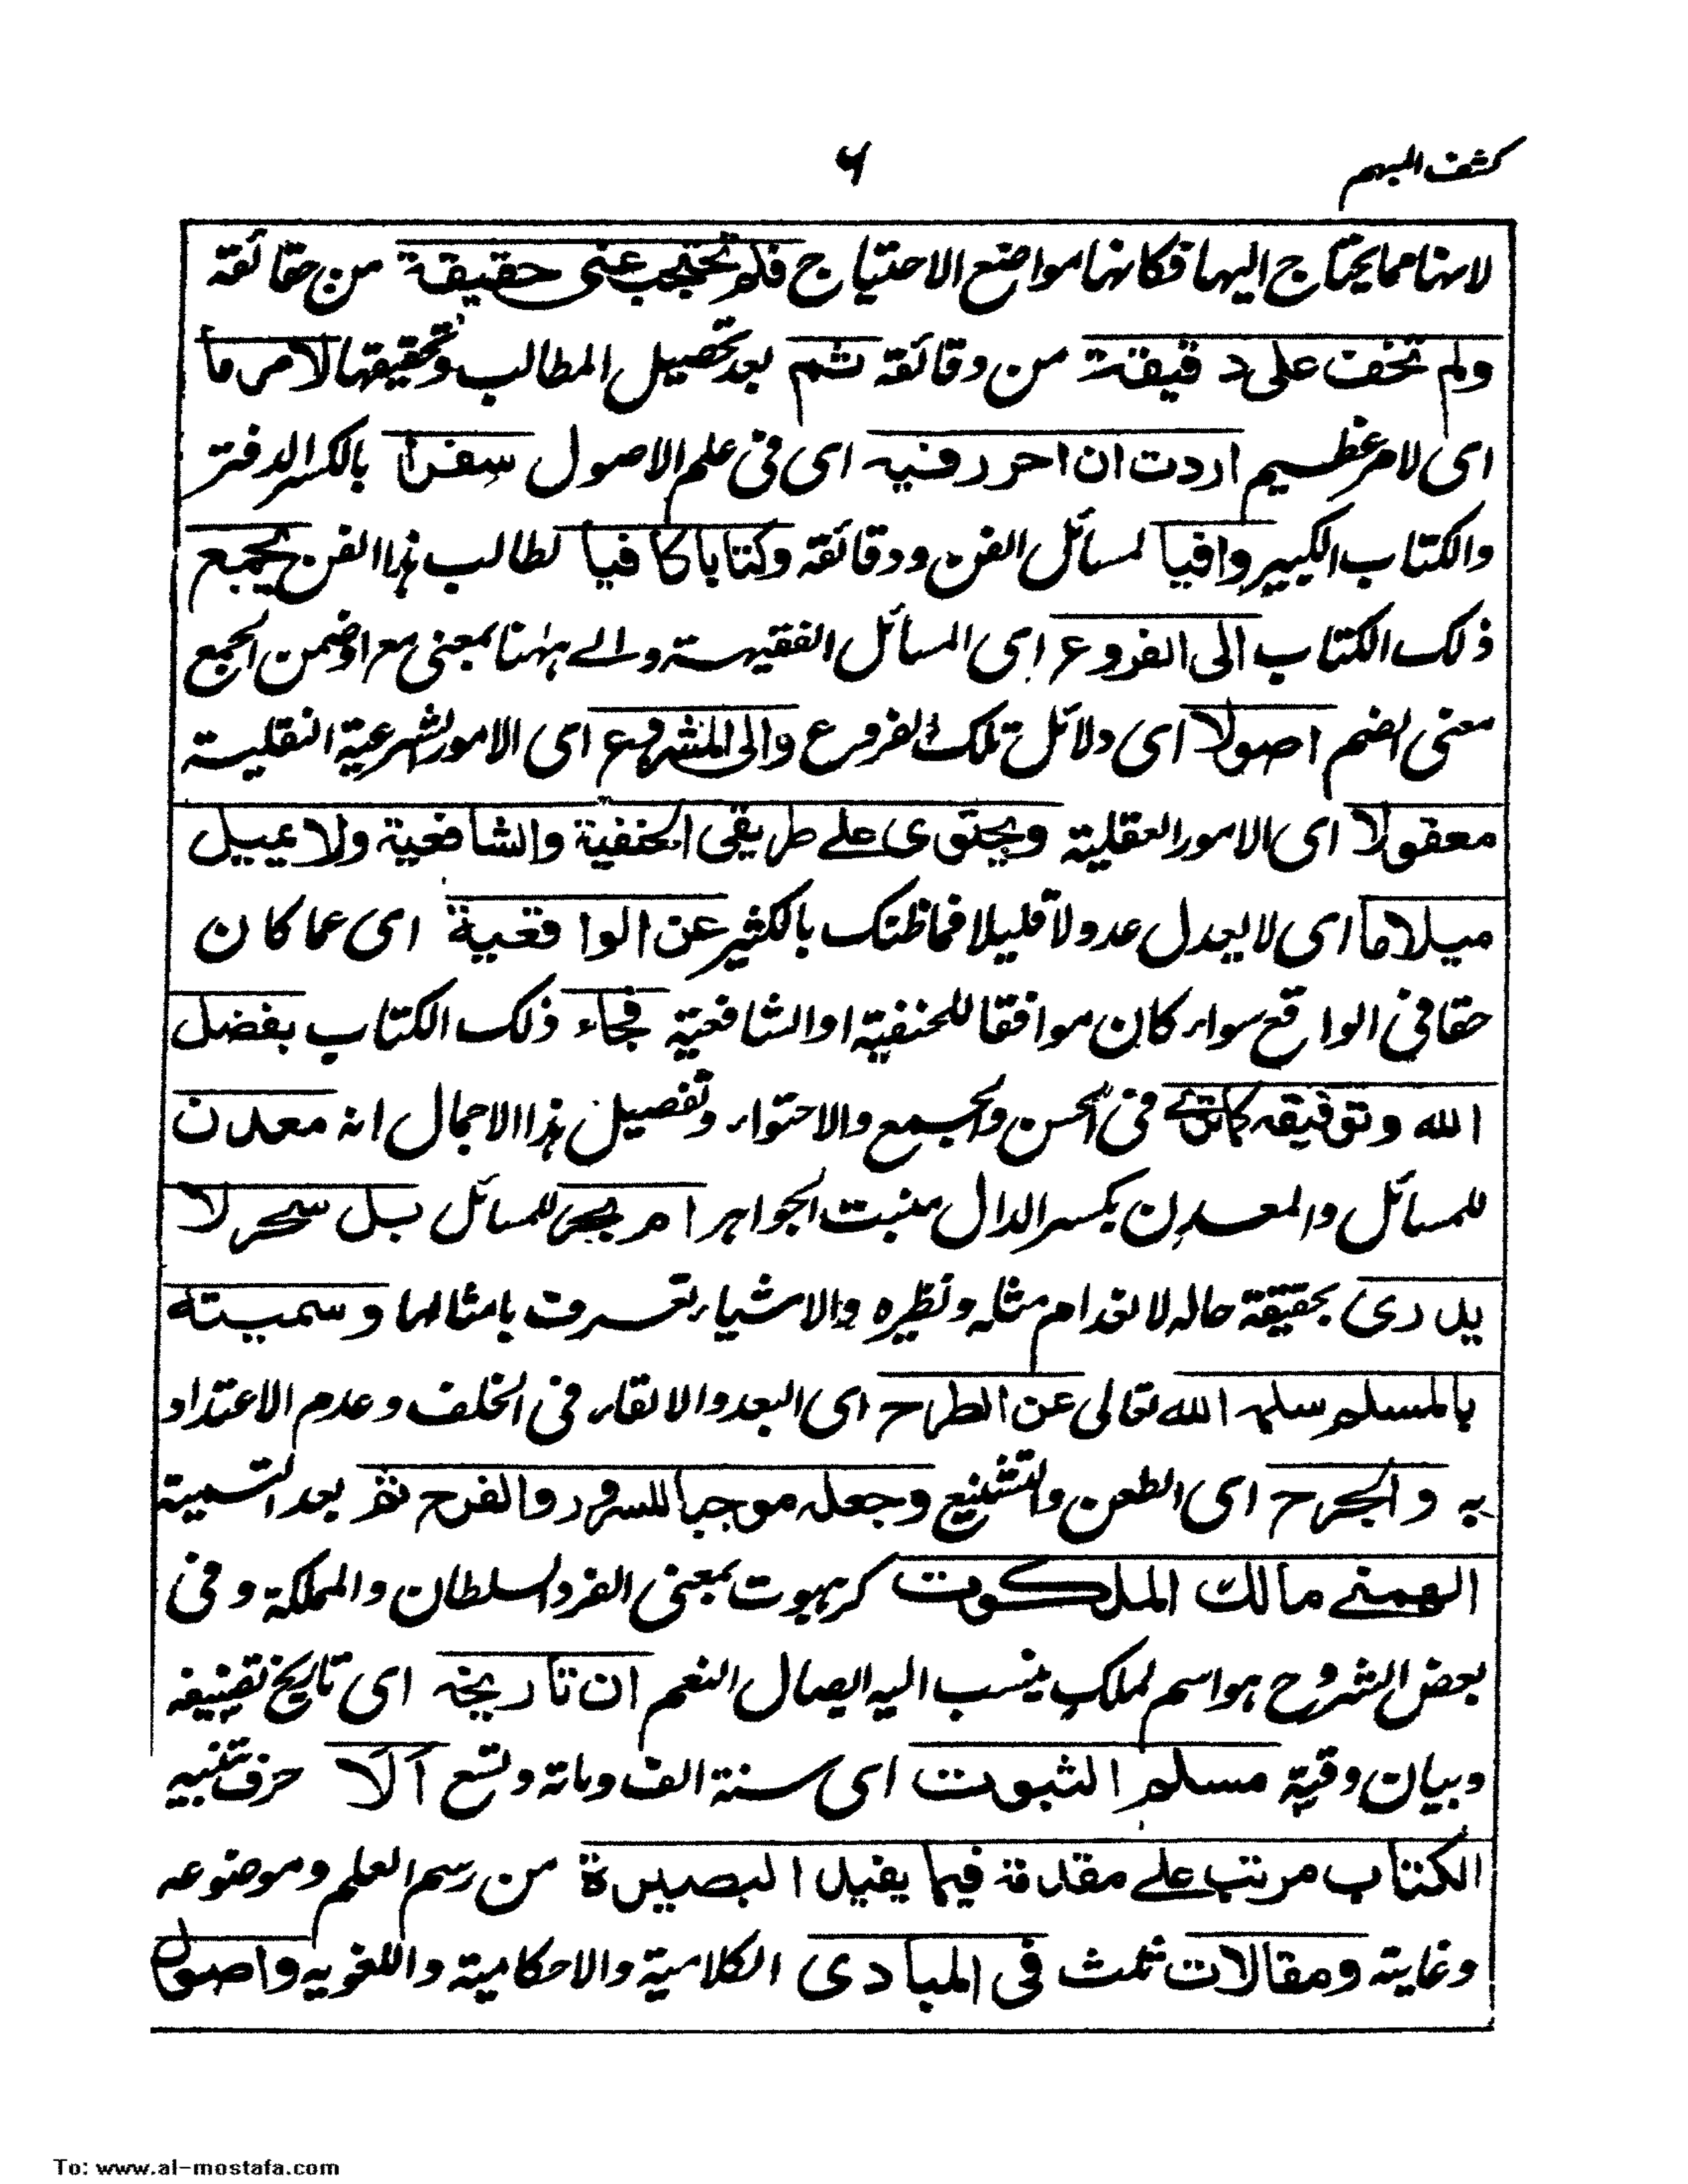 كشف المبهم
۶
لانها مما يحتاج اليها فكانها مواضع الاحتياج فلم تحتجب عنى حقيقة من حقائقه
ولم تخف على دقيقة من دقائقه ثم بعد تحصيل المطالب وتحقيقها لامر ما
اى لامر عظيم اردت ان احرر فيه اى فى علم الاصول سفرا بالكسر الدفتر
والكتاب الكبير وافيا لمسائل الفن ودقائقه وكتابا كافيا لطالب هذا الفن يجمع
ذلك الكتاب الى الفروع اى المسائل الفقيهة والے ههنا بمعنى مع او ضمن الجمع
معنى الضم اصولا اى دلائل تلك الفروع والى المشروع اى الامور الشرعية النقلية
معقولا اى الامور العقلية ويحتوى علے طريقى الحنفية والشافعية ولا يميل
ميلا ما اى لا يعدل عدولا قليلا فما ظنك بالكثير عن الواقعية اى عما كان
حقا فى الواقع سواء كان موافقا للحنفية او الشافعية فجاء ذلك الكتاب بفضل
الله وتوفيقه كما ترى فى الحسن والجمع والاحتواء وتفصيل هذا الاجمال انه معدن
للمسائل والمعدن بكسر الدال منبت الجواهر ام بحر للمسائل بل سحر لا
يدرى بحقيقة حاله لانعدام مثله ونظيره والاشياء تعرف بامثالها وسميته
بالمسلم سلمه الله تعالى عن الطرح اى البعد والالقاء فى الخلف وعدم الاعتداد
به والجرح اى الطعن والتشنيع وجعله موجبا للسرور والفرح ثم بعد التسمية
الهمنے مالك الملكوت كرهبوت بمعنى الفرد السلطان والمملكة وفى
بعض الشروح هو اسم لملك ينسب اليه ايصال النعم ان تاريخه اى تاريخ تصنيفه
وبيان وقته مسلم الثبوت اى سنة الف ومائة وتسع الا حرف تنبيه
الكتاب مرتب علے مقدمة فيما يفيد البصيرة من رسم العلم وموضوعه
وغايته ومقالات ثلث فى المبادى الكلامية والاحكامية واللغويه واصول
To: www.al-mostafa.com